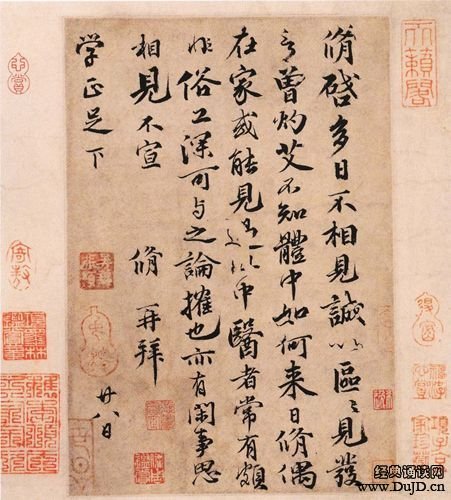 脩啓多日不相見誠以區〻見發
言曾灼艾不知體中如何来日脩偶
在家或能見過此中醫者常有頗
非俗工深可与之論攉也亦有閑事思
相見不宣 脩再拜 廿八日
学正足下
天籟閣
经典诵读网
www.DujD.cn